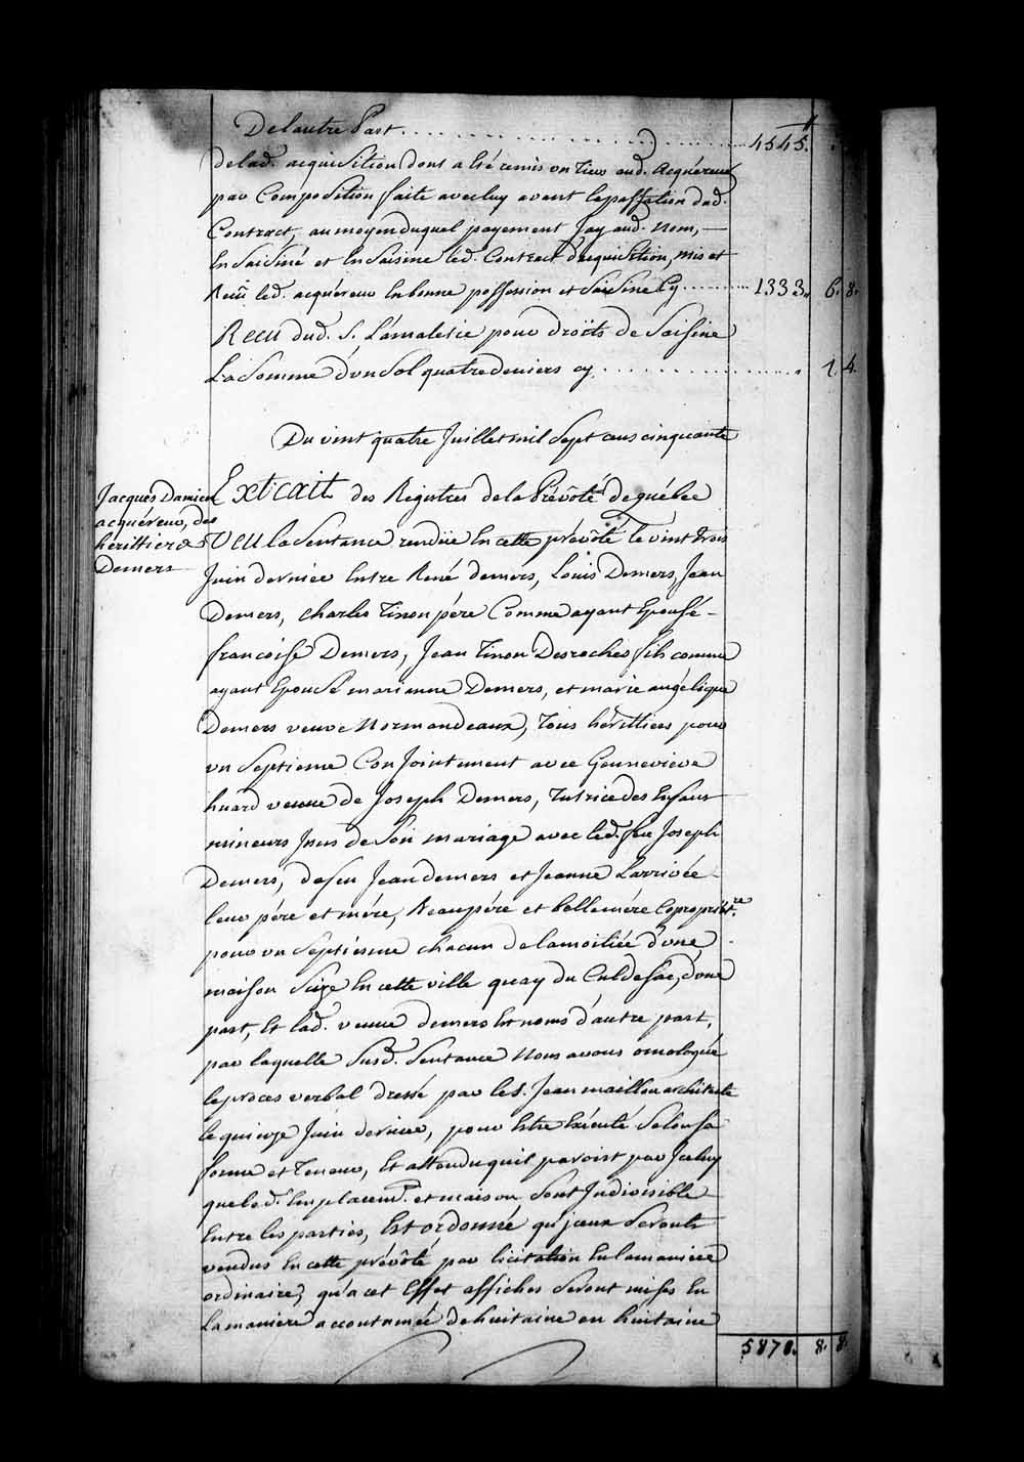 De lautre Part . . . . . . . . . . . . . . . . 4545.
de lad. acquisition dont a Eté remis un Tiers aud. Acquéreur
par Composition faite avec luy avant la passation dud.
Contract, au moyen duquel payement Jay aud. Nom, —
Ensaisiné et Ensaisine led. Contract d'acquisition, mis et
Reçû led. acquéreur En bonne possession et Saisine Cy . . . . . 1333. 6. 8.
Recu dud. S. L'amaletie pour droits de Saisine
La Somme d'un Sol quatre deniers cy . . . . . . . . . . 1. 4.
Du vint quatre Juillet mil Sept cens cinquante
Jacques Damien
acquéreur, des
herittiers
Demers
Extrait des Registres de la Prévôté de québec
VEU la Sentance rendüe En cette prévôté le vint trois
Juin dernier Entre René demers, Louis Demers, Jean
Demers, charles Tinon père Comme ayant Epousé -
francoise Demers, Jean Tinon Desroches fils comme
ayant Epousé marianne Demers, et marie angélique
Demers veuve Normandeaux, Tous hérittiers pour
un Septieme Conjointement avec Gennevieve
huard veuve de Joseph Demers, Tutrice des Enfans
mineurs Jssus de Son mariage avec led. feu Joseph
Demers, de feu Jean demers et Jeanne Larrivée -
leur pére et mére, Beaupére et bellemére Copropriét.re
pour un Septiéme chacun de la moitiée d'une
maison Size En cette ville quay du Culdesac, d'une
part, Et lad. veuve demers Es noms d'autre part,
par laquelle Susd. Sentance Nous avons omologué
le procés verbal dressé par le S. Jean maillou architecte
le quinze Juin dernier, pour Estre Exécuté Selon Sa
forme et Teneur, Et attendu quil paroist par Jceluy
que led. Emplacem.t et maison Sont Jndivisible
Entre les parties, Est ordonné qu'jceux Seront
vendus En cette prévôté par licitation En la maniere
ordinaire, qu'a cet Effet affiches Seront mises En
La maniere accoutumée de huitaine en huitaine
5878. 8. 8.